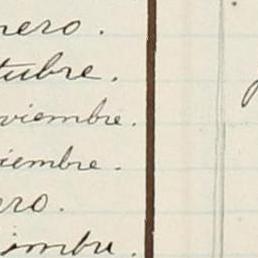 nero.
tubre.
viembre.
iembre.
ero.
iembre.